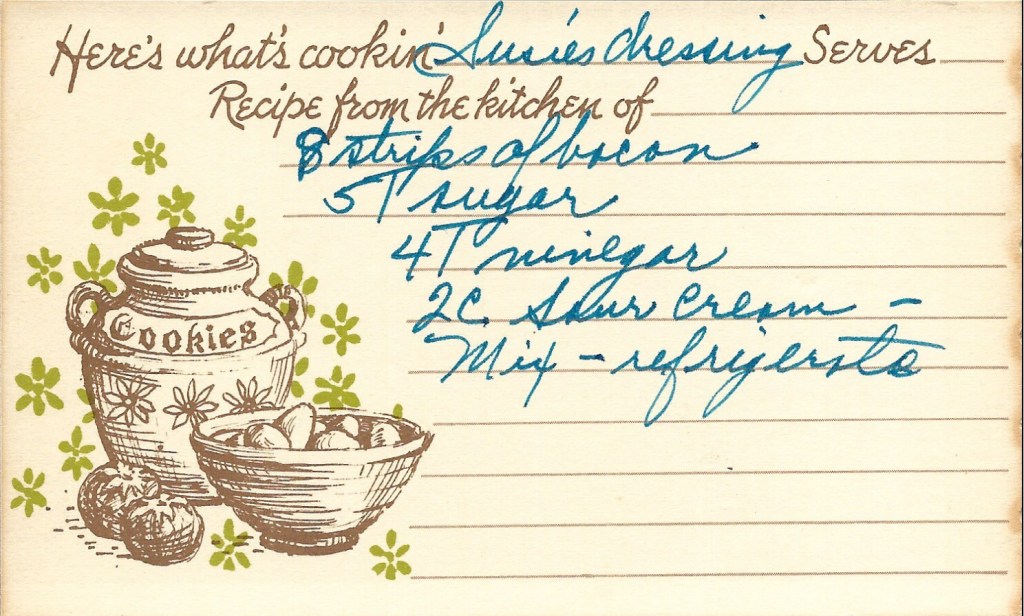 Here's what's cookin' Susie's dressing Serves
Recipe from the kitchen of
8 strips of bacon
5T sugar
4T vinegar
2C. Sour Cream –
Mix – refrigerate
Cookies